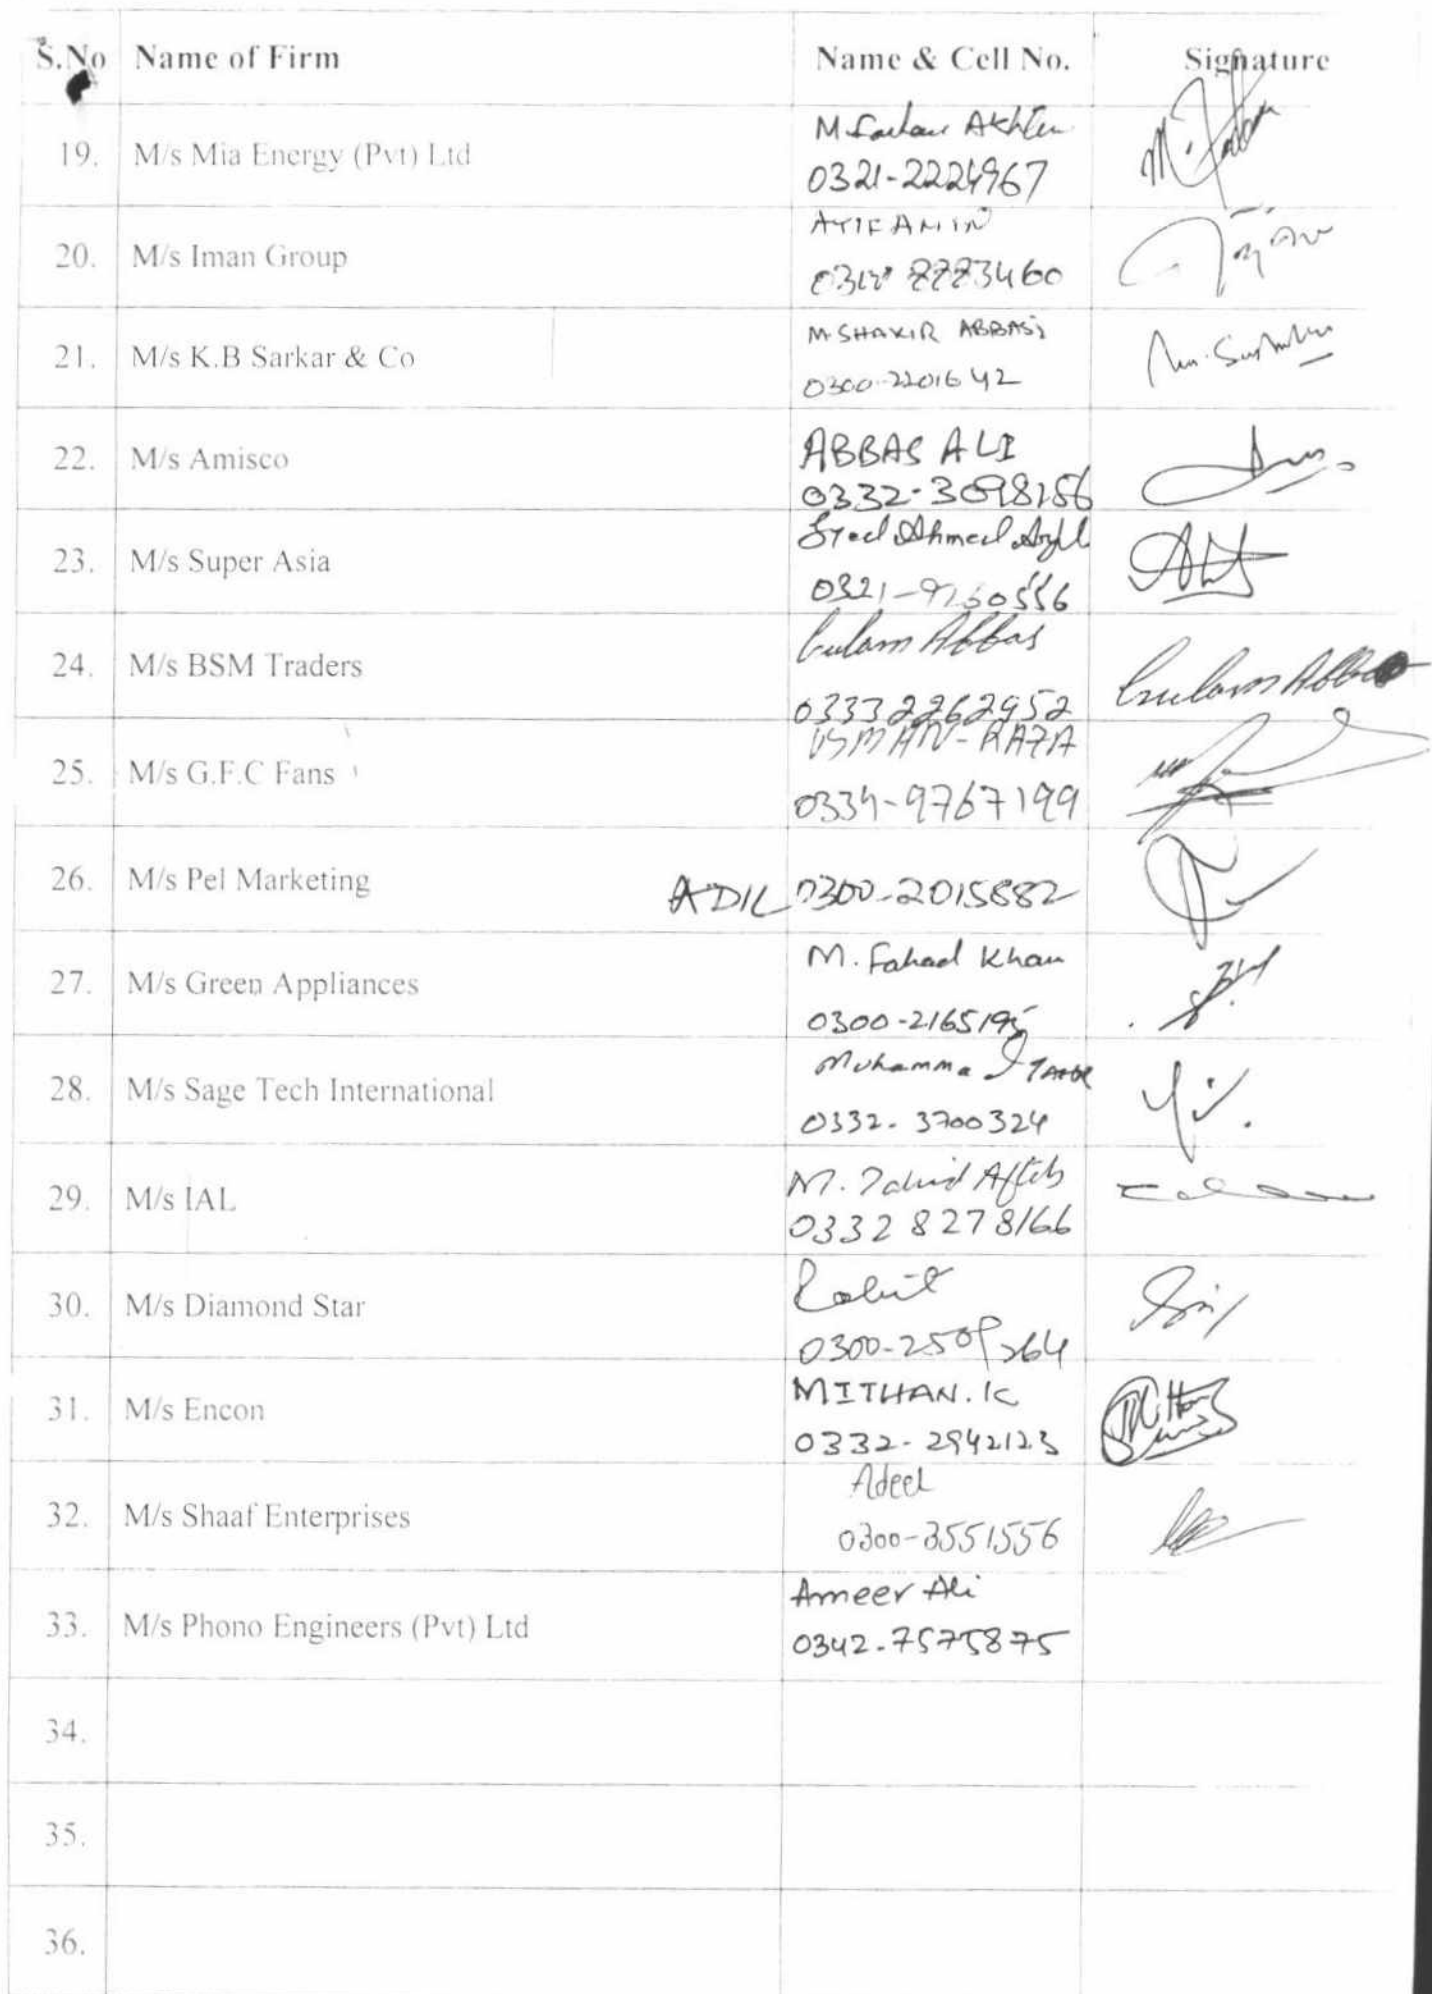 S.No Name of Firm Name & Cell No. Signature
19. M/s Mia Energy (Pvt) Ltd
M. Akhter
0321-2224967
20. M/s Iman Group
ATIF AMIN
21. M/s K.B Sarkar & Co
M. SHAKIR ABBASi
0300-2201642
22. M/s Amisco
ABBAS ALI
0332-3098156
23. M/s Super Asia
Syed Ahmed
24. M/s BSM Traders
Gulam Abbas Gulam Abbas
03332262952
25. M/s G.F.C Fans
USMAN-RAZA
0334-9767199
26. M/s Pel Marketing ADIL 0300-2015882
27. M/s Green Appliances
M. Fahad Khan
0300-2165195
28. M/s Sage Tech International
Muhammad
0332-3700324
29. M/s IAL
M. Zahid Aftab
0332 8278166
30. M/s Diamond Star
31. M/s Encon
MITHAN. K
0332-2942123
32. M/s Shaaf Enterprises
Adeel
0300-3551556
33. M/s Phono Engineers (Pvt) Ltd
Ameer Ali
0342-7575875
34.
35.
36.